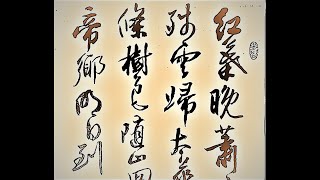 红葉晚蕭
残雲歸太華
條樹色随山迥
帝鄉明日到